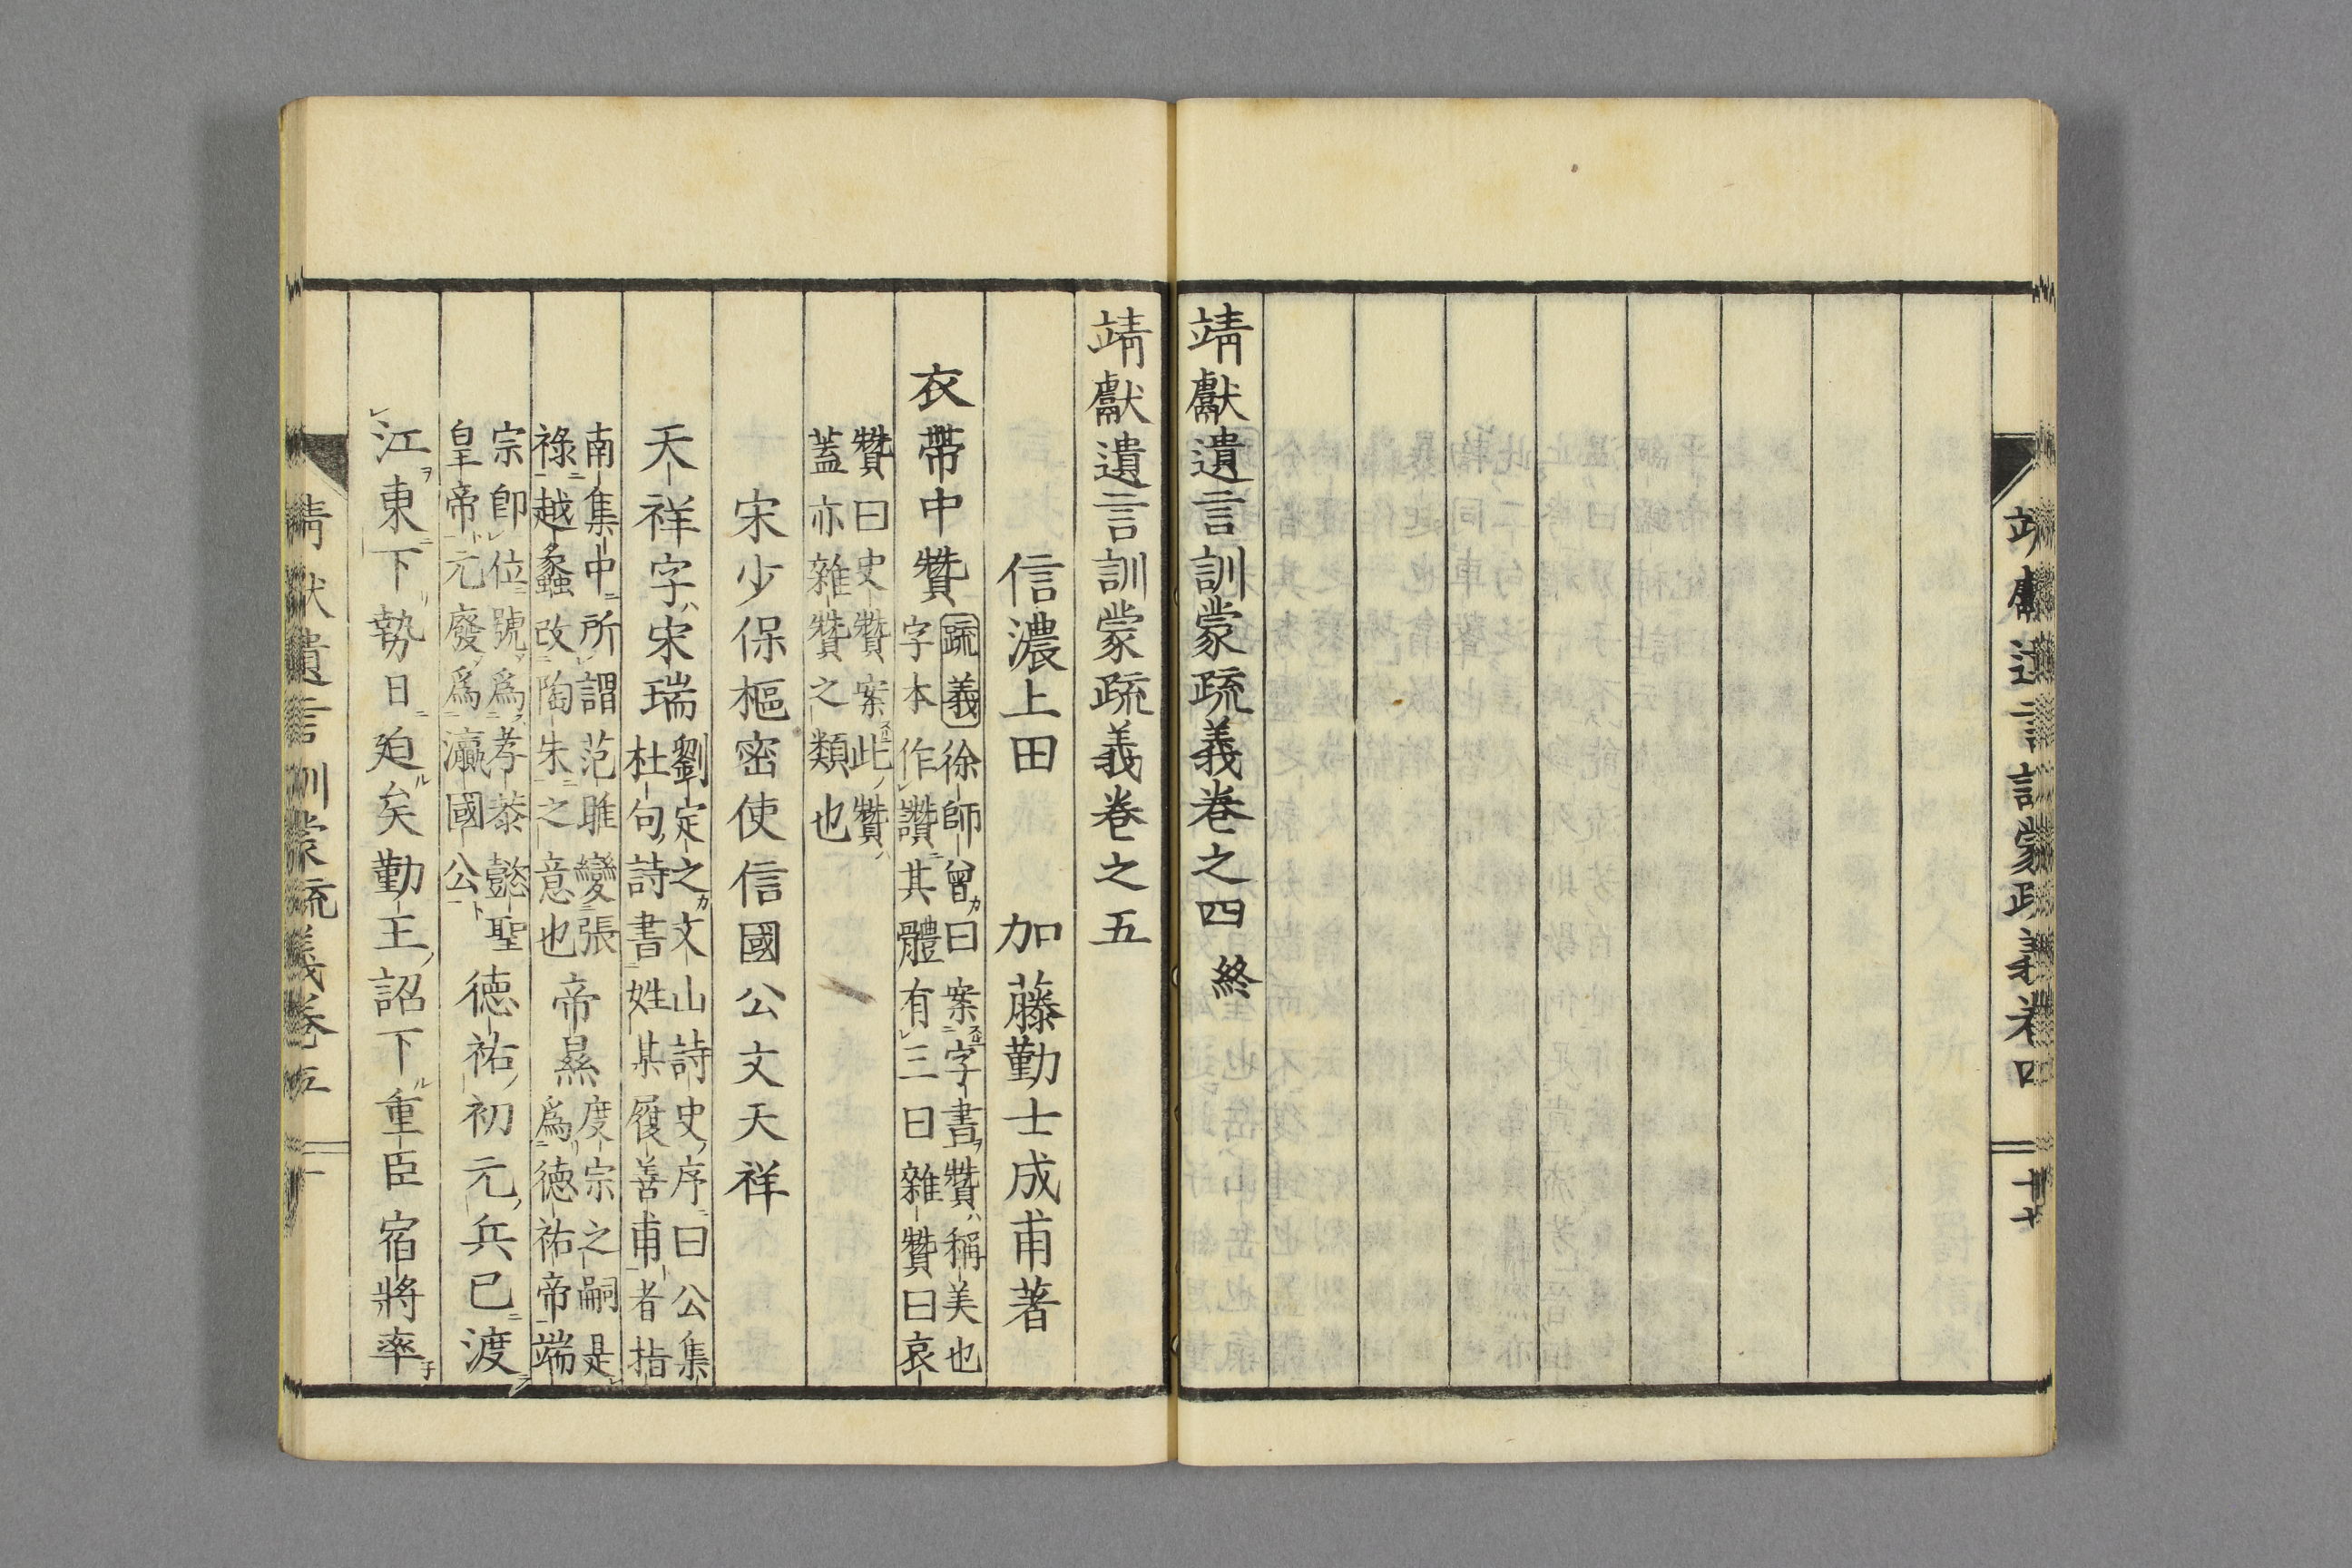 靖獻遺言訓蒙疏義卷之四 終
靖獻遺言訓蒙疏義卷之五
信濃上田 加藤勤士成甫著
衣帶中贊 疏義 徐師曾曰案字書贊稱美也
字本作讚其體有三曰雜贊曰哀
贊曰史贊案此贊
蓋亦雜贊之類也
宋少保樞密使信國公文天祥
天祥字宋瑞 劉定之文山詩史序曰公集
杜句詩書姓某履善甫者指
南集中所謂范睢變張
祿越蠡改陶朱之意也
帝㬎 度宗之嗣是
爲德祐帝端
宗卽位號爲孝恭懿聖
皇帝元廢爲瀛國公
德祐初元兵已渡
江東下勢日迫矣勤王詔下重臣宿將率
靖獻遺言訓蒙疏義卷五 一